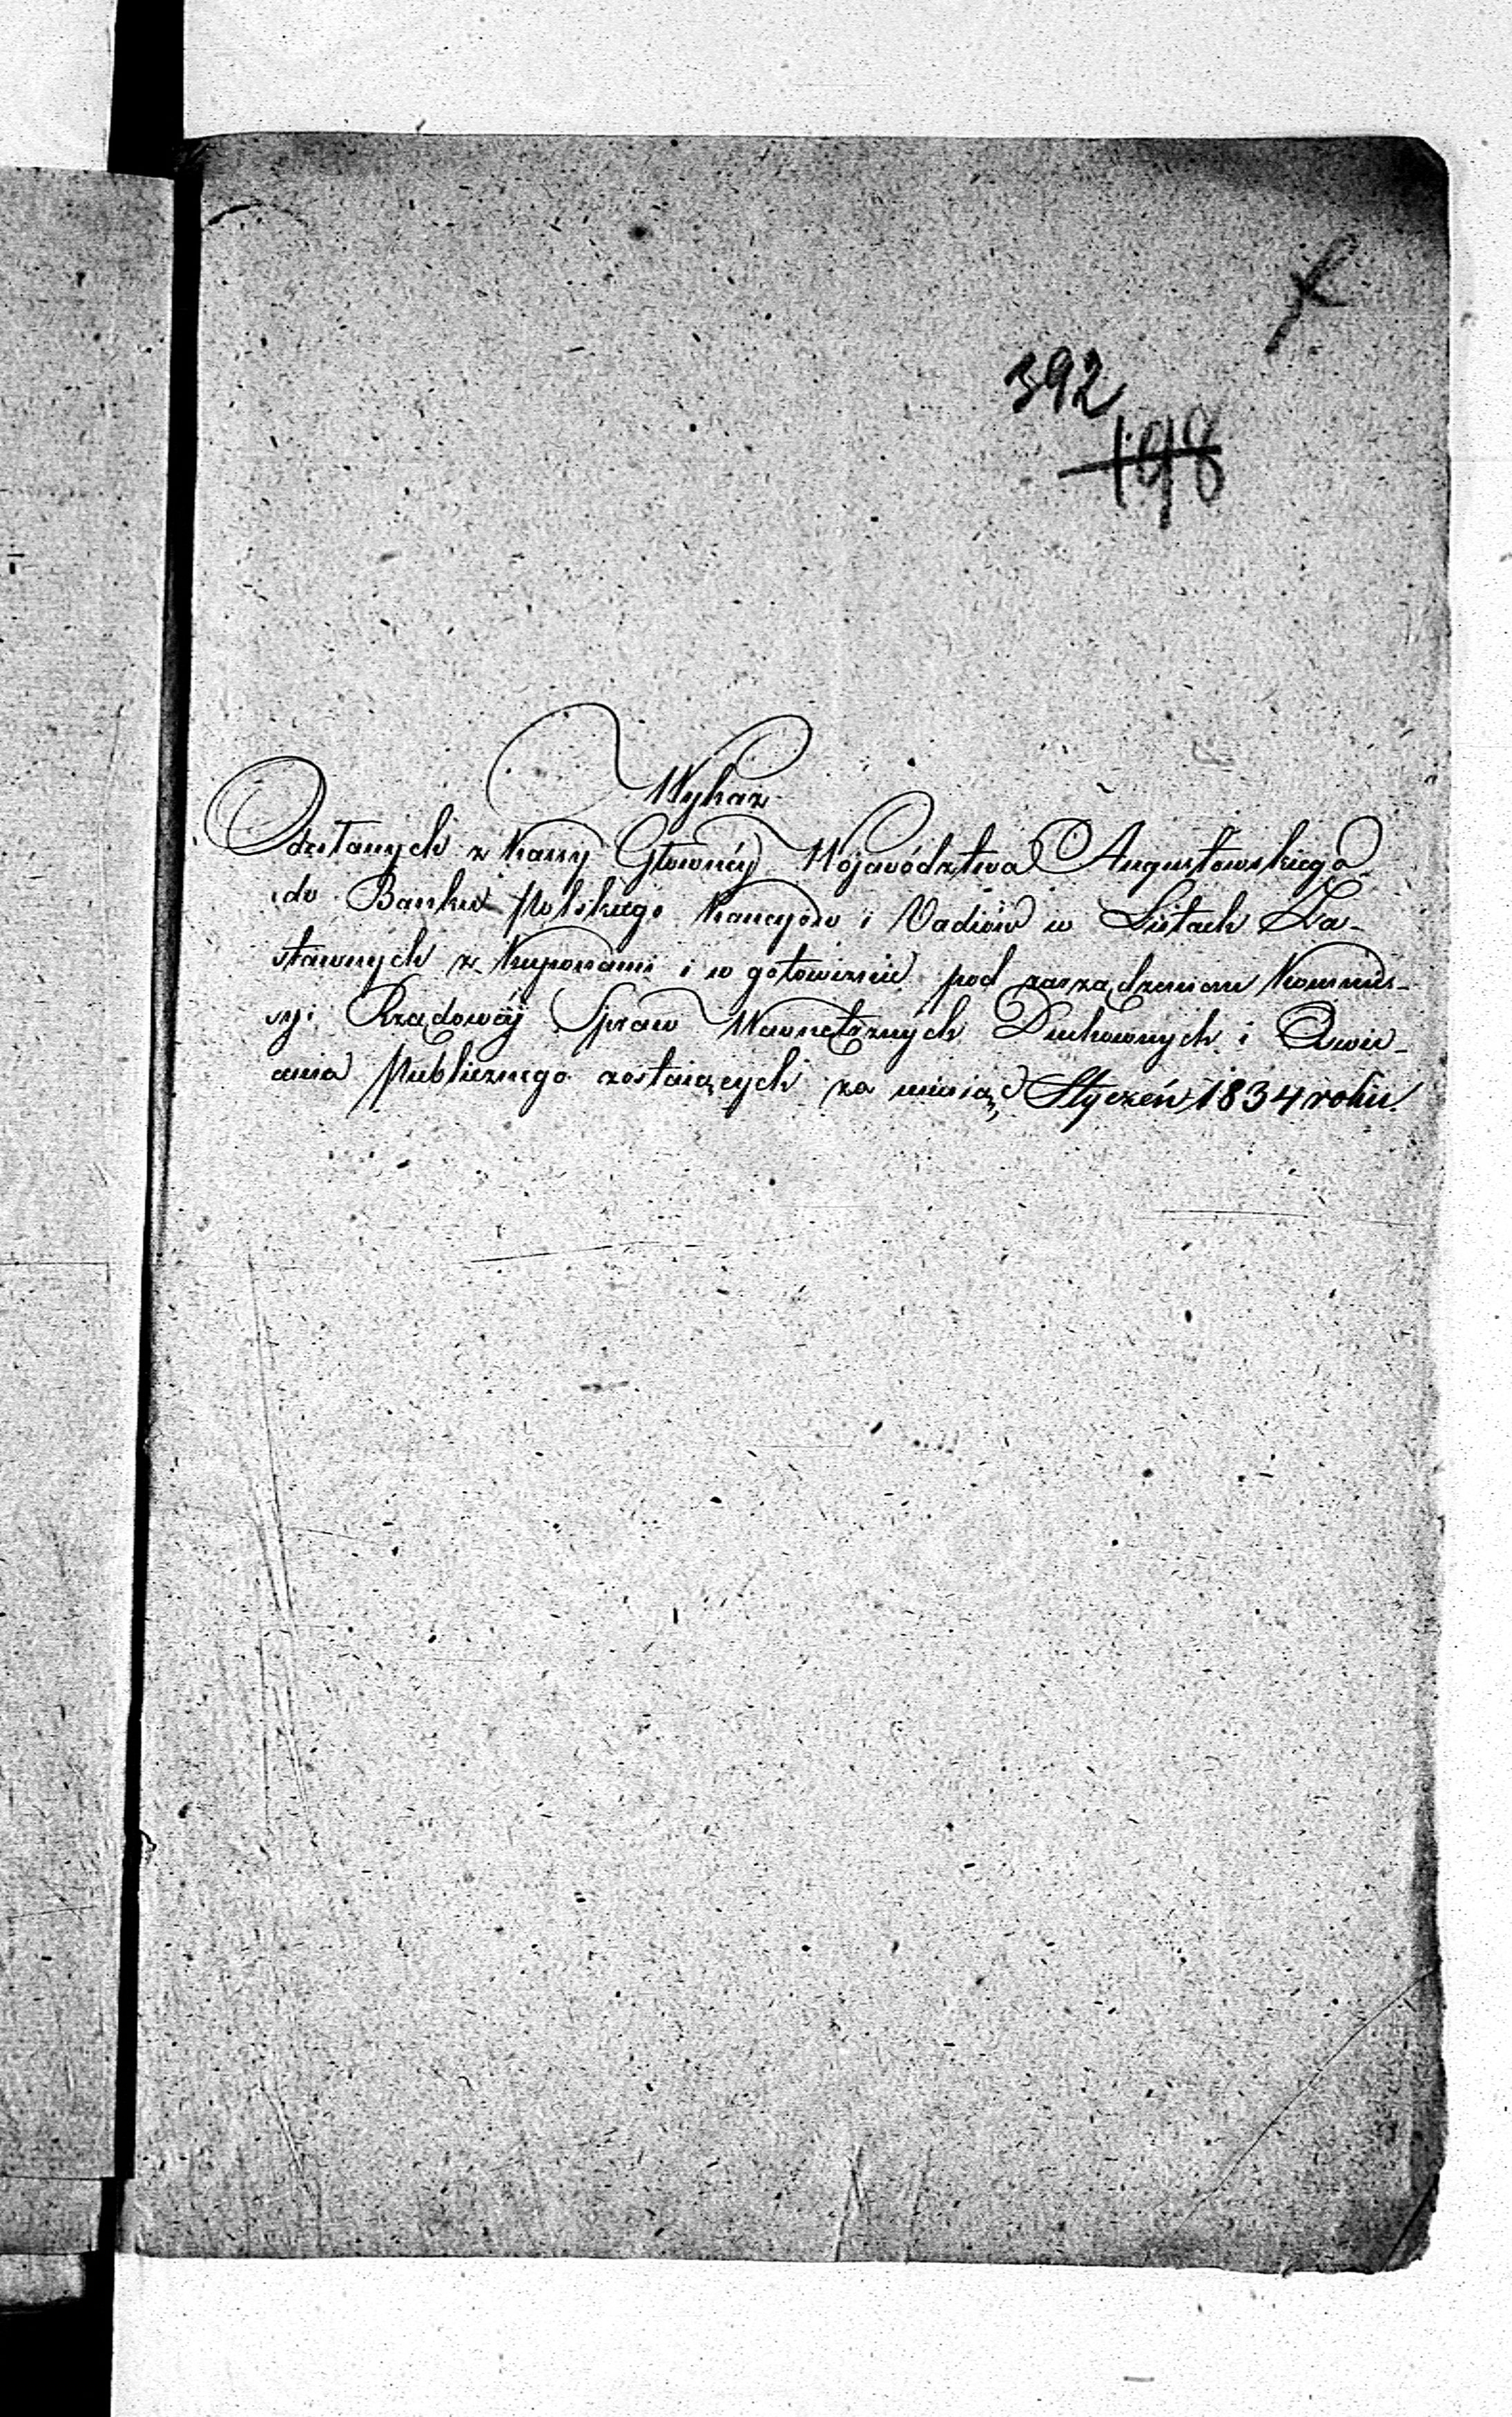 392
198
Wykaz
Odesłanych z Kassy Głownéj Województwa Augustowskiego
do Banku Polskiego Kaucyów i Vadiów w Listach Za-
stawnych z Kuponami i w gotowiznie pod zarządzeniem Kommis-
syi Rządowéj Spraw Wewnętrznych Duchownych i Oswie-
cenia Publicznego zostaiących za miesiąc Styczeń 1834 roku.